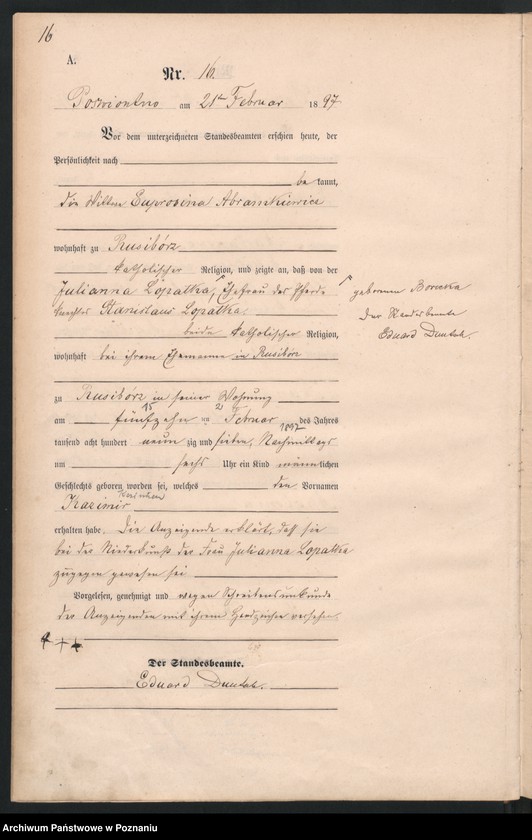 16
A.
Nr. 16.
am 21ten Februar 1897
Vor dem unterzeichneten Standesbeamten erschien heute, der
Persönlichkeit nach
be kannt,
die Wittwe Euprosina Abramkiewicz
wohnhaft zu Rusibórz
katholischer Religion, und zeigte an, daß von der
Julianna Lopatka, Ehefrau des Pferde
knechts Stanislaus Lopatka
geborenen
Der Standesbeamte
Eduard
beide katholischer Religion,
wohnhaft bei ihrem Ehemanne in Rusibórz
zu Rusibórz in seiner Wohnung
am fünfzehn ten Februar des Jahres
15 2 1897
tausend acht hundert neun zig und sieben, Nachmittags
um sechs Uhr ein Kind männlichen
Geschlechts geboren worden sei, welches den Vornamen
Kazimir
erhalten habe. Die Anzeigende erklärt, daß sie
bei der Niederkunft der Frau Julianna Lopatka
zugegen gewesen sei
Vorgelesen, genehmigt und wegen Schreibensunkunde
der Anzeigenden mit ihrem Handzeichen versehen.
+++
Der Standesbeamte.
Eduard
Archiwum Państwowe w Poznaniu